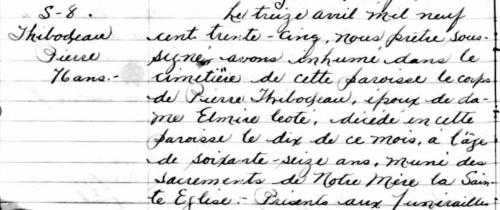 S-8.
Thibodeau
Pierre
76 ans.-
Le treize avril mil neuf
cent trente-cinq, nous prêtre sous-
signé, avons inhumé dans le
cimetière de cette paroisse le corps
de Pierre Thibodeau, époux de da-
me Elmire Coté, décédé en cette
paroisse le dix de ce mois, à l'âge
de soixante-seize ans, muni des
sacrements de Notre Mère la Sain-
te Eglise.- Présents aux funérailles